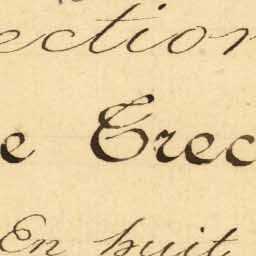 ection
e Trec
En huit